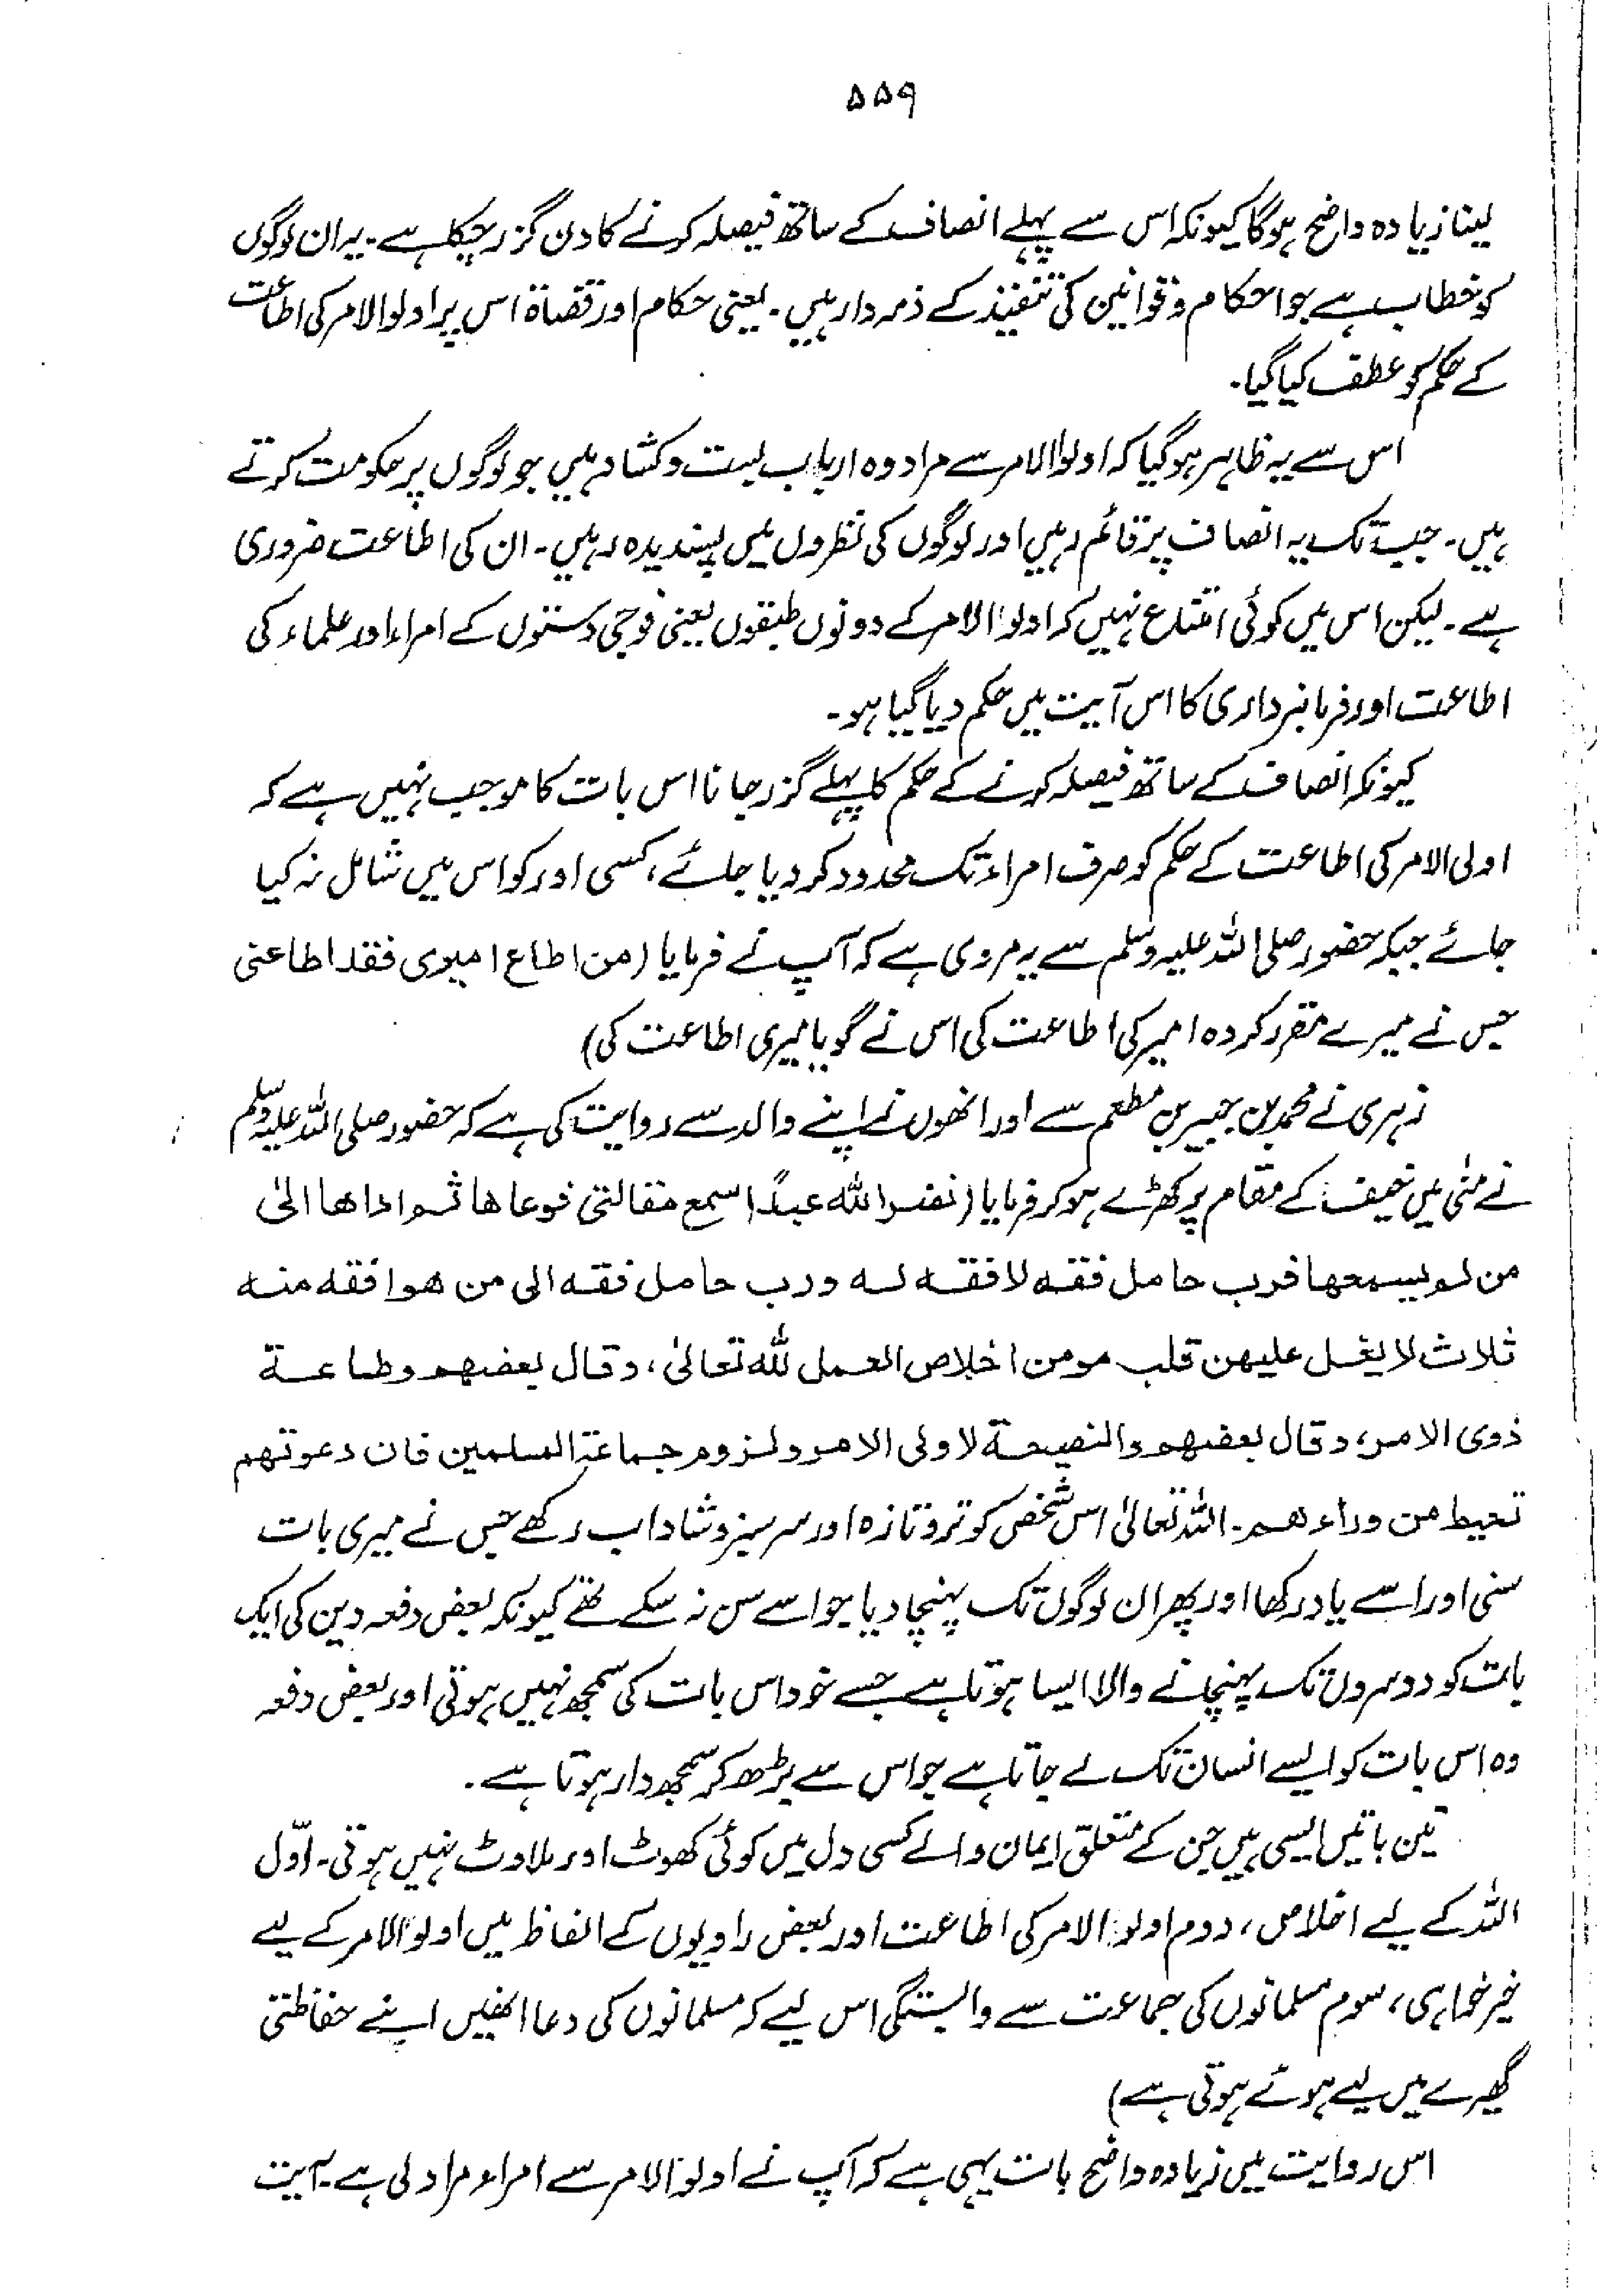 ۵۵۹
لینا زیادہ واضح ہوگا کیونکہ اس سے پہلے انصاف کے ساتھ فیصلہ کرنے کا دن گزر چکا ہے۔ یہ ان لوگوں
کو خطاب ہے جو احکام و قوانین کی تنفیذ کے ذمہ دار ہیں۔ یعنی حکام اور قضاۃ اس پر اولوالامر کی اطاعت
کے حکم کو عطف کیا گیا۔
اس سے یہ ظاہر ہوگیا کہ اولوالامر سے مراد وہ ارباب بست و کشاد ہیں جو لوگوں پر حکومت کرتے
ہیں۔ جب تک یہ انصاف پر قائم رہیں اور لوگوں کی نظروں میں پسندیدہ رہیں۔ ان کی اطاعت ضروری
ہے۔ لیکن اس میں کوئی امتناع نہیں کہ اولوالامر کے دونوں طبقوں یعنی فوجی دستوں کے امراء اور علماء کی
اطاعت اور فرمانبرداری کا اس آیت میں حکم دیا گیا ہو۔
کیونکہ انصاف کے ساتھ فیصلہ کرنے کے حکم کا پہلے گزر جانا اس بات کا موجب نہیں ہے کہ
اولی الامر کی اطاعت کے حکم کو صرف امراء تک محدود کر دیا جائے، کسی اور کو اس میں شامل نہ کیا
جائے جبکہ حضور صلی اللہ علیہ وسلم سے یہ مروی ہے کہ آپ نے فرمایا (من اطاع امیری فقد اطاعنی
جس نے میرے مقرر کردہ امیر کی اطاعت کی اس نے گویا میری اطاعت کی)
زہری نے محمد بن جبیر بن مطعم سے اور انھوں نے اپنے والد سے روایت کی ہے کہ حضور صلی اللہ علیہ وسلم
نے منیٰ میں خیف کے مقام پر کھڑے ہو کر فرمایا (نضر اللہ عبداً سمع مقالتی فوعاھا ثم اداھا الیٰ
من لم یسمعھا فرب حامل فقہ لا فقہ لہ ورب حامل فقہ الی من ھو افقہ منہ
ثلاث لا یغل علیھن قلب مومن اخلاص العمل للہ تعالیٰ، وقال بعضھم وطاعۃ
ذوی الامر، وقال بعضھم والنصیحۃ لاولی الامر ولزوم جماعۃ المسلمین فان دعوتھم
تحیط من وراءھم۔ اللہ تعالیٰ اس شخص کو تروتازہ اور سرسبز و شاداب رکھے جس نے میری بات
سنی اور اسے یاد رکھا اور پھر ان لوگوں تک پہنچا دیا جو اسے سن نہ سکے تھے کیونکہ بعض دفعہ دین کی ایک
بات کو دوسروں تک پہنچانے والا ایسا ہوتا ہے جسے خود اس بات کی سمجھ نہیں ہوتی اور بعض دفعہ
وہ اس بات کو ایسے انسان تک لے جاتا ہے جو اس سے بڑھ کر سمجھ دار ہوتا ہے۔
تین باتیں ایسی ہیں جن کے متعلق ایمان والے کسی دل میں کوئی کھوٹ اور ملاوٹ نہیں ہوتی۔ اوّل
اللہ کے لیے اخلاص، دوم اولوالامر کی اطاعت اور بعض راویوں کے الفاظ میں اولوالامر کے لیے
خیر خواہی، سوم مسلمانوں کی جماعت سے وابستگی اس لیے کہ مسلمانوں کی دعا انھیں اپنے حفاظتی
گھیرے میں لیے ہوئے ہوتی ہے)
اس روایت میں زیادہ واضح بات یہی ہے کہ آپ نے اولوالامر سے امراء مراد لی ہے۔ آیت